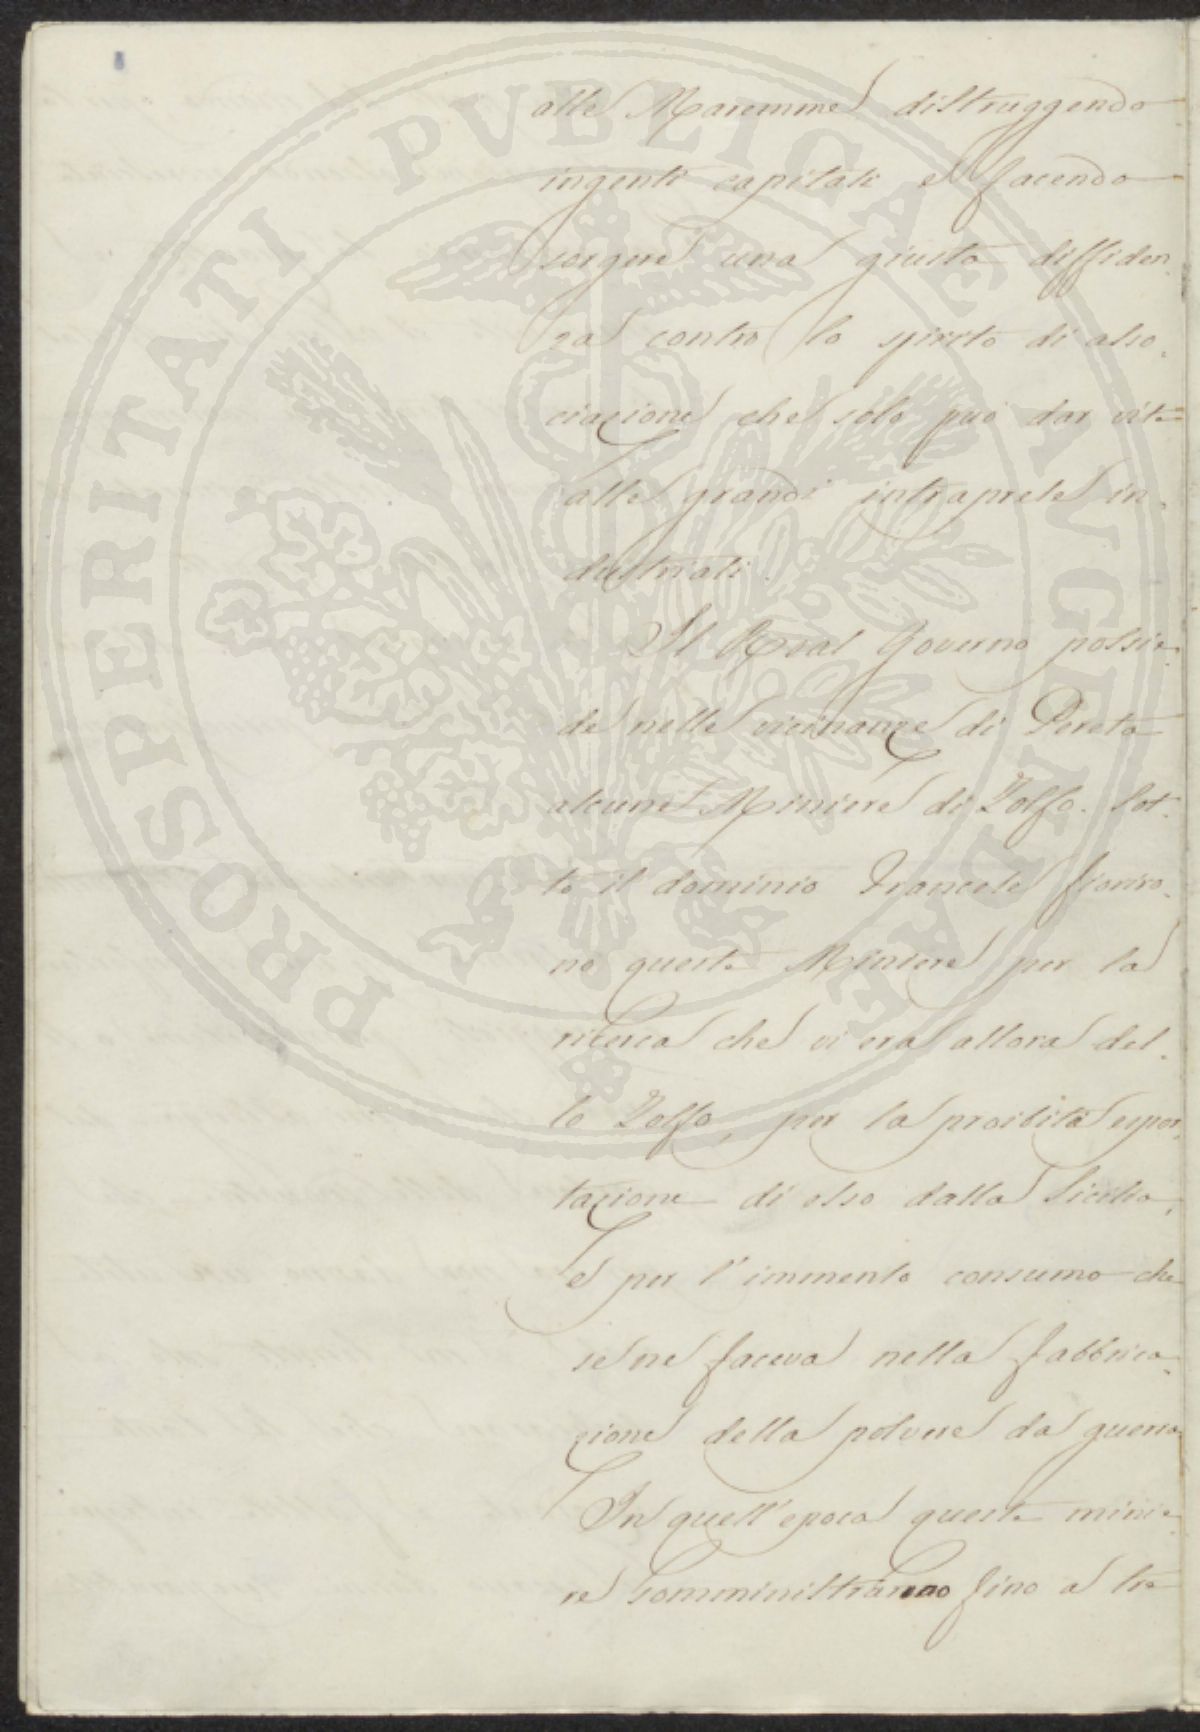 PROSPERITATI PVBLICAE AVGENDAE
alle Maremme distruggendo
ingenti capitali e facendo
sorgere una giusta diffiden-
za contro lo spirito di asso-
ciazione che solo può dar vita
alle grandi intraprese in-
dustriali.
Il Real Governo possie-
de nelle vicinanze di Pereta
alcune Miniere di Zolfo. Sot-
to il dominio Francese fioriro-
no queste Miniere per la
ricerca che vi era allora del-
lo Zolfo, per la proibita espor-
tazione di esso dalla Sicilia,
e per l'immenso consumo che
se ne faceva nella fabbrica-
zione della polvere da guerra
In quell'epoca queste minie-
re somministrarono fino a tre